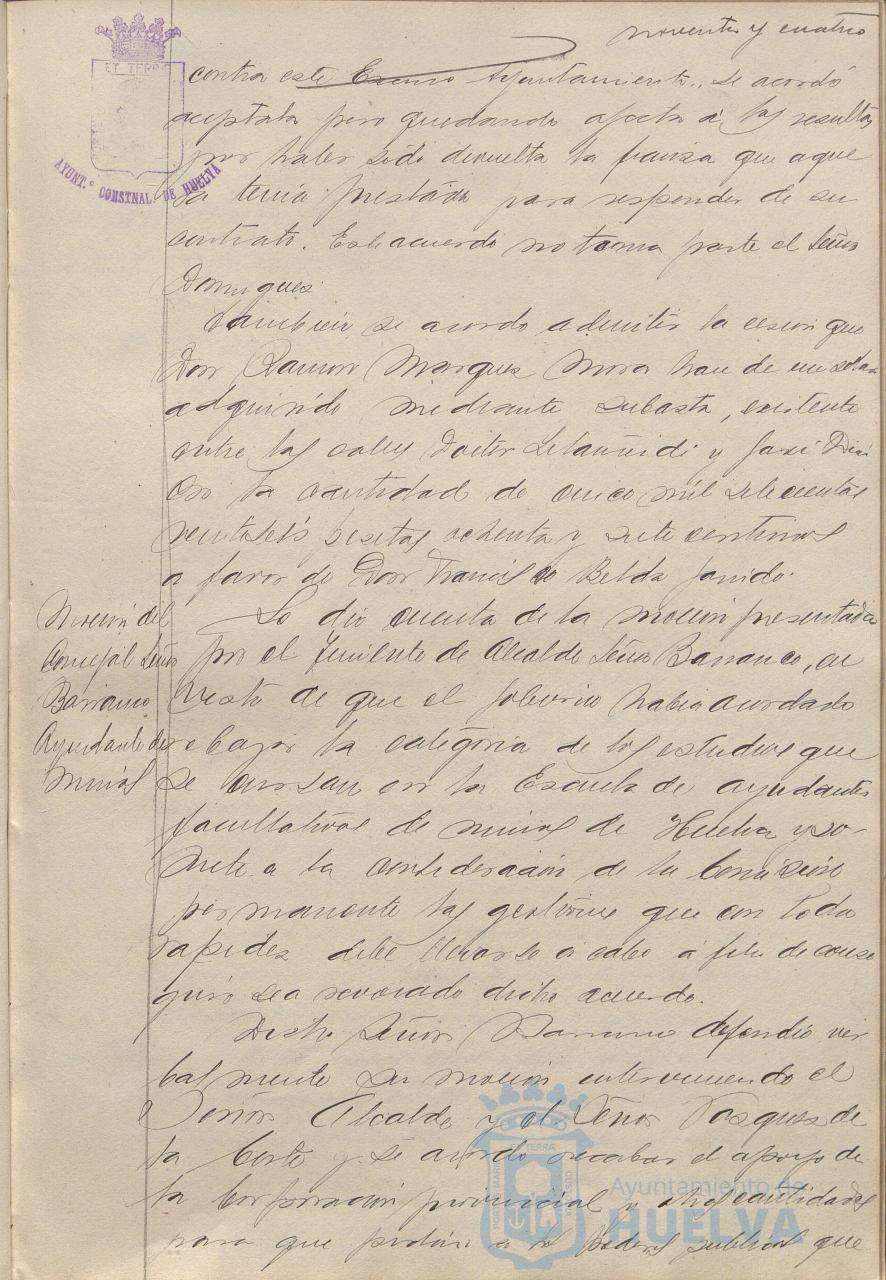 noventa y cuatro
ET TERR
AYUNT.º CONSTNAL DE HUELVA
contra este Excmo Ayuntamiento. Se acordó
aceptarla pero quedando afecta á las resultas
por haber sido devuelta la fianza que aque
lla tenia prestada para responder de su
contrato. Este acuerdo no toma parte el Señor
Domingues.
Tambien se acordo admitir la cesion que
Don Ramon Marquez Mora hace de un solar
adquirido mediante subasta, existente
entre las calles Doctor Letamendi y José
en la cantidad de cinco mil setecientas
veintiseis pesetas ochenta y siete centimos
a favor de Don Francisco Belda
Moción del
Concejal Señor
Barranco
Ayudante de
Minas
Se dio cuenta de la mocion presentada
por el Teniente de Alcalde Señor Barranco, en
vista de que el Gobierno habia acordado
rebajar la categoria de los estudios que
se cursan en la Escuela de ayudantes
facultativos de minas de Huelva y so-
mete a la consideración de la Comisión
permanente las gestiones que con toda
rapidez debe llevarse a cabo a fin de conse
guir sea revocado dicho acuerdo.
Dicho Señor Barranco defendió ver
balmente su mocion interviniendo el
Señor Alcalde y el Señor Vasques de
la Corte y se acordo recabar el apoyo de
la Corporación provincial y otras entidades
para que pidan a los Poderes publicos que
Ayuntamiento de
HUELVA